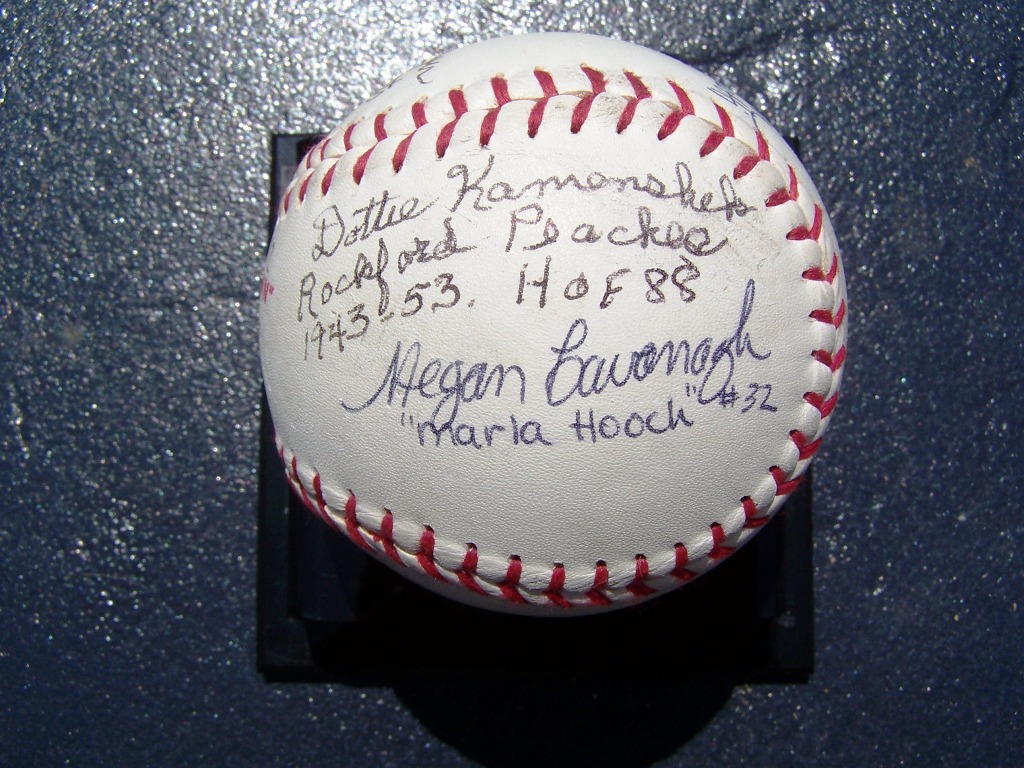 Dottie Kamenshek
Rockford Peaches
1943-53. HOF 88
Megan Cavanagh
"Marla Hooch" #32